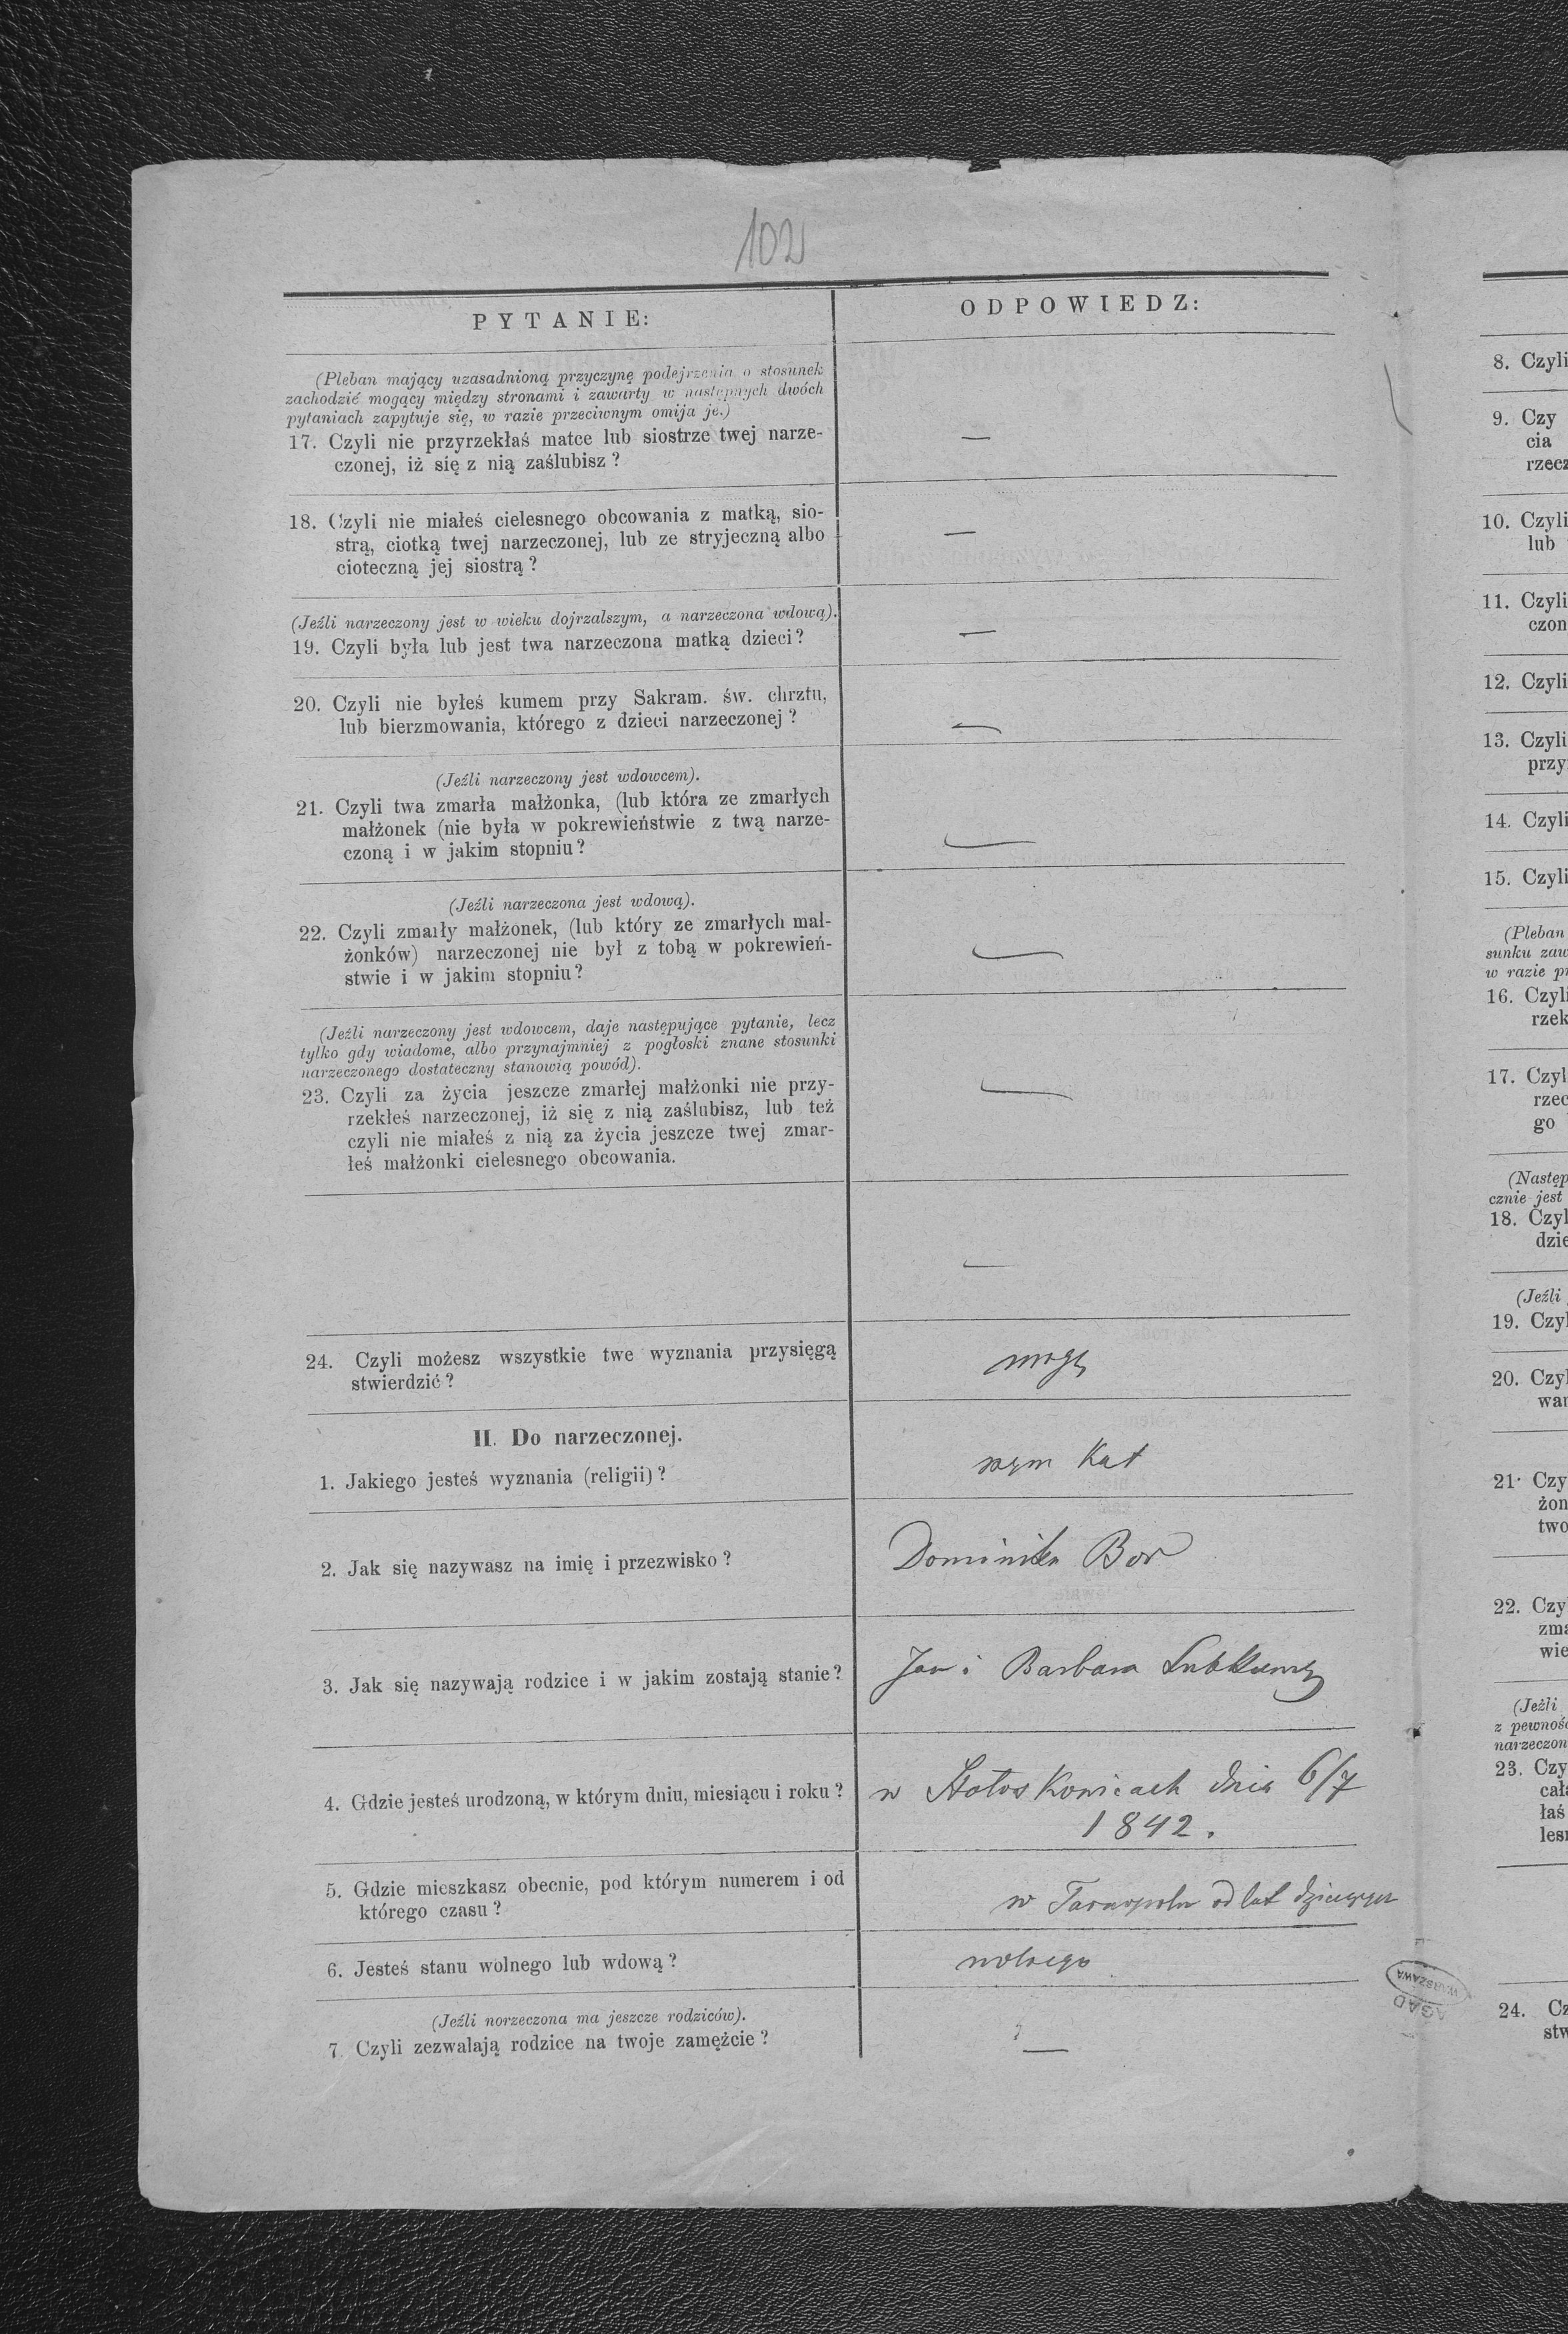 102
PYTANIE:
ODPOWIEDZ:
(Pleban mający uzasadnioną przyczynę podejrzenia o stosunek
zachodzić mogący między stronami i zawarty w następnych dwóch
pytaniach zapytuje się, w razie przeciwnym omija je.)
17. Czyli nie przyrzekłaś matce lub siostrze twej narze-
czonej, iż się z nią zaślubisz?
—
18. Czyli nie miałeś cielesnego obcowania z matką, sio-
strą, ciotką twej narzeczonej, lub ze stryjeczną albo
cioteczną jej siostrą?
—
(Jeźli narzeczony jest w wieku dojrzalszym, a narzeczona wdową).
19. Czyli była lub jest twa narzeczona matką dzieci?
—
20. Czyli nie byłeś kumem przy Sakram. św. chrztu,
lub bierzmowania, którego z dzieci narzeczonej?
—
(Jeźli narzeczony jest wdowcem).
21. Czyli twa zmarła małżonka, (lub która ze zmarłych
małżonek (nie była w pokrewieństwie z twą narze-
czoną i w jakim stopniu?
—
(Jeźli narzeczona jest wdową).
22. Czyli zmarły małżonek, (lub który ze zmarłych mał-
żonków) narzeczonej nie był z tobą w pokrewień-
stwie i w jakim stopniu?
—
(Jeźli narzeczony jest wdowcem, daje następujące pytanie, lecz
tylko gdy wiadome, albo przynajmniej z pogłoski znane stosunki
narzeczonego dostateczny stanowią powód).
23. Czyli za życia jeszcze zmarłej małżonki nie przy-
rzekłeś narzeczonej, iż się z nią zaślubisz, lub też
czyli nie miałeś z nią za życia jeszcze twej zmar-
łeś małżonki cielesnego obcowania.
—
—
24. Czyli możesz wszystkie twe wyznania przysięgą
stwierdzić?
mogę
II. Do narzeczonej.
1. Jakiego jesteś wyznania (religii)?
rzym Kat
2. Jak się nazywasz na imię i przezwisko?
Dominika Bor
3. Jak się nazywają rodzice i w jakim zostają stanie?
Jan i Barbara
4. Gdzie jesteś urodzoną, w którym dniu, miesiącu i roku?
w dnia 6/7
1842.
5. Gdzie mieszkasz obecnie, pod którym numerem i od
którego czasu?
w Tarnopolu od lat
6. Jesteś stanu wolnego lub wdową?
wolnego
(Jeźli norzeczona ma jeszcze rodziców).
7. Czyli zezwalają rodzice na twoje zamężcie?
—
8. Czyli
9. Czy
cia
rzecz
10. Czyli
lub
11. Czyli
czon
12. Czyli
13. Czyli
przy
14. Czyli
15. Czyli
(Pleban
sunku zaw
w razie pr
16. Czyli
rzek
17. Czyl
rzec
go
(Następ
cznie jest
18. Czyl
dzie
(Jeźli
19. Czyl
20. Czyl
wan
21. Czy
żon
two
22. Czy
zma
wie
(Jeźli
z pewnoś
narzeczon
23. Czy
cał
łaś
lesn
AGAD
WARSZAWA
24. Cz
stw